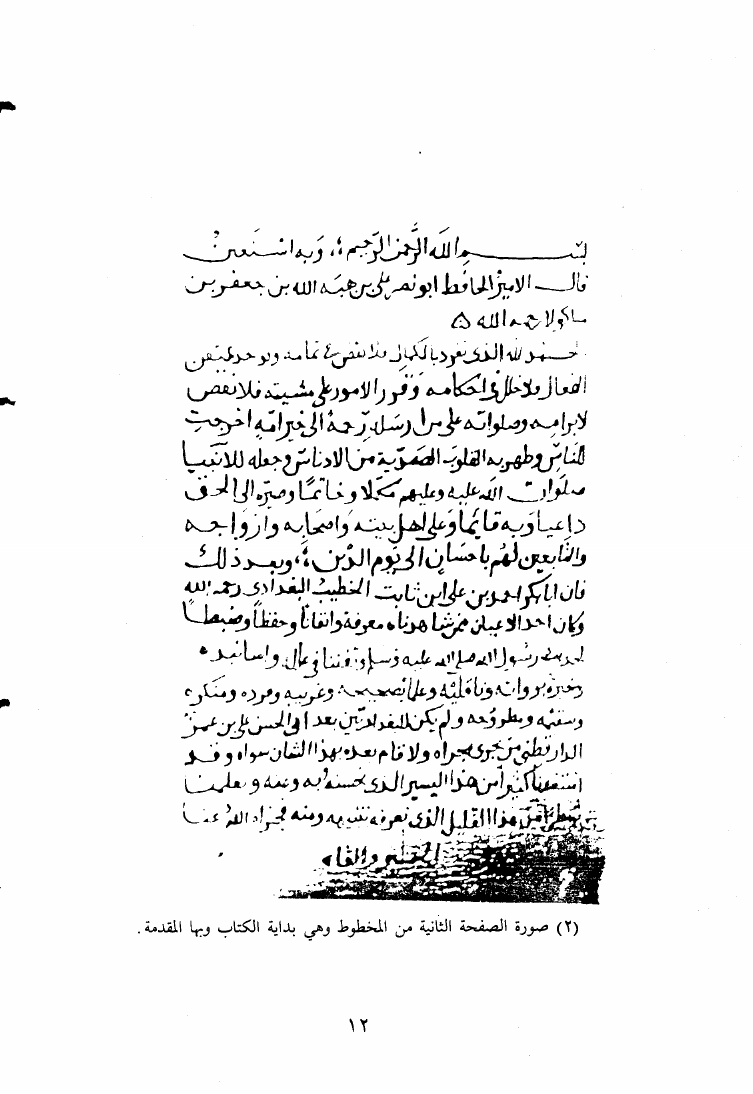 بسم الله الرحمن الرحيم ؛ وبه استعين
قال الامير الحافظ ابو نصر علي بن هبة الله بن جعفر بن
ماكولا رحمه الله ه
لله الذي تفرد بالكمال فلا نقص
الفعال فلا خلل في احكامه وقرر الامور على مشيته فلا نقص
لابرامه وصلواته على من ارسله رحمة الى خير امة اخرجت
للناس وطهر به القلوب من الادناس وجعله للانبيا
صلوات الله عليه وعليهم مكملا وخاتما وصيره الى الحق
داعيا وبه قايما وعلى اهل بيته واصحابه وازواجه
والتابعين لهم باحسان الى يوم الدين ؛ وبعد ذلك
فان ابا بكر احمد بن علي ابن ثابت الخطيب البغدادي رحمه الله
وكان احد الاعيان ممن شاهدناه معرفة واتقانا وحفظا وضبطا
لحديث رسول الله صلى الله عليه وسلم وتفننا في علل واسانيده
وخبرة برواته وناقليه وعلما بصحيحه وغريبه وفرده ومنكره
وسقيمه ومطروحه ولم يكن للبغداديين بعد ابي الحسن علي بن عمر
الدارقطني من يجري مجراه ولا قام بعده بهذا الشان سواه وقد
استفدنا كثيرا من هذا اليسير الذي نحسنه به وعنه وتعلمنا
شطرا من هذا القليل الذي نعرفه بتنبيهه ومنه فجزاه الله عنا
الخير ولقاه
(٢) صورة الصفحة الثانية من المخطوط وهي بداية الكتاب وبها المقدمة .
١٢